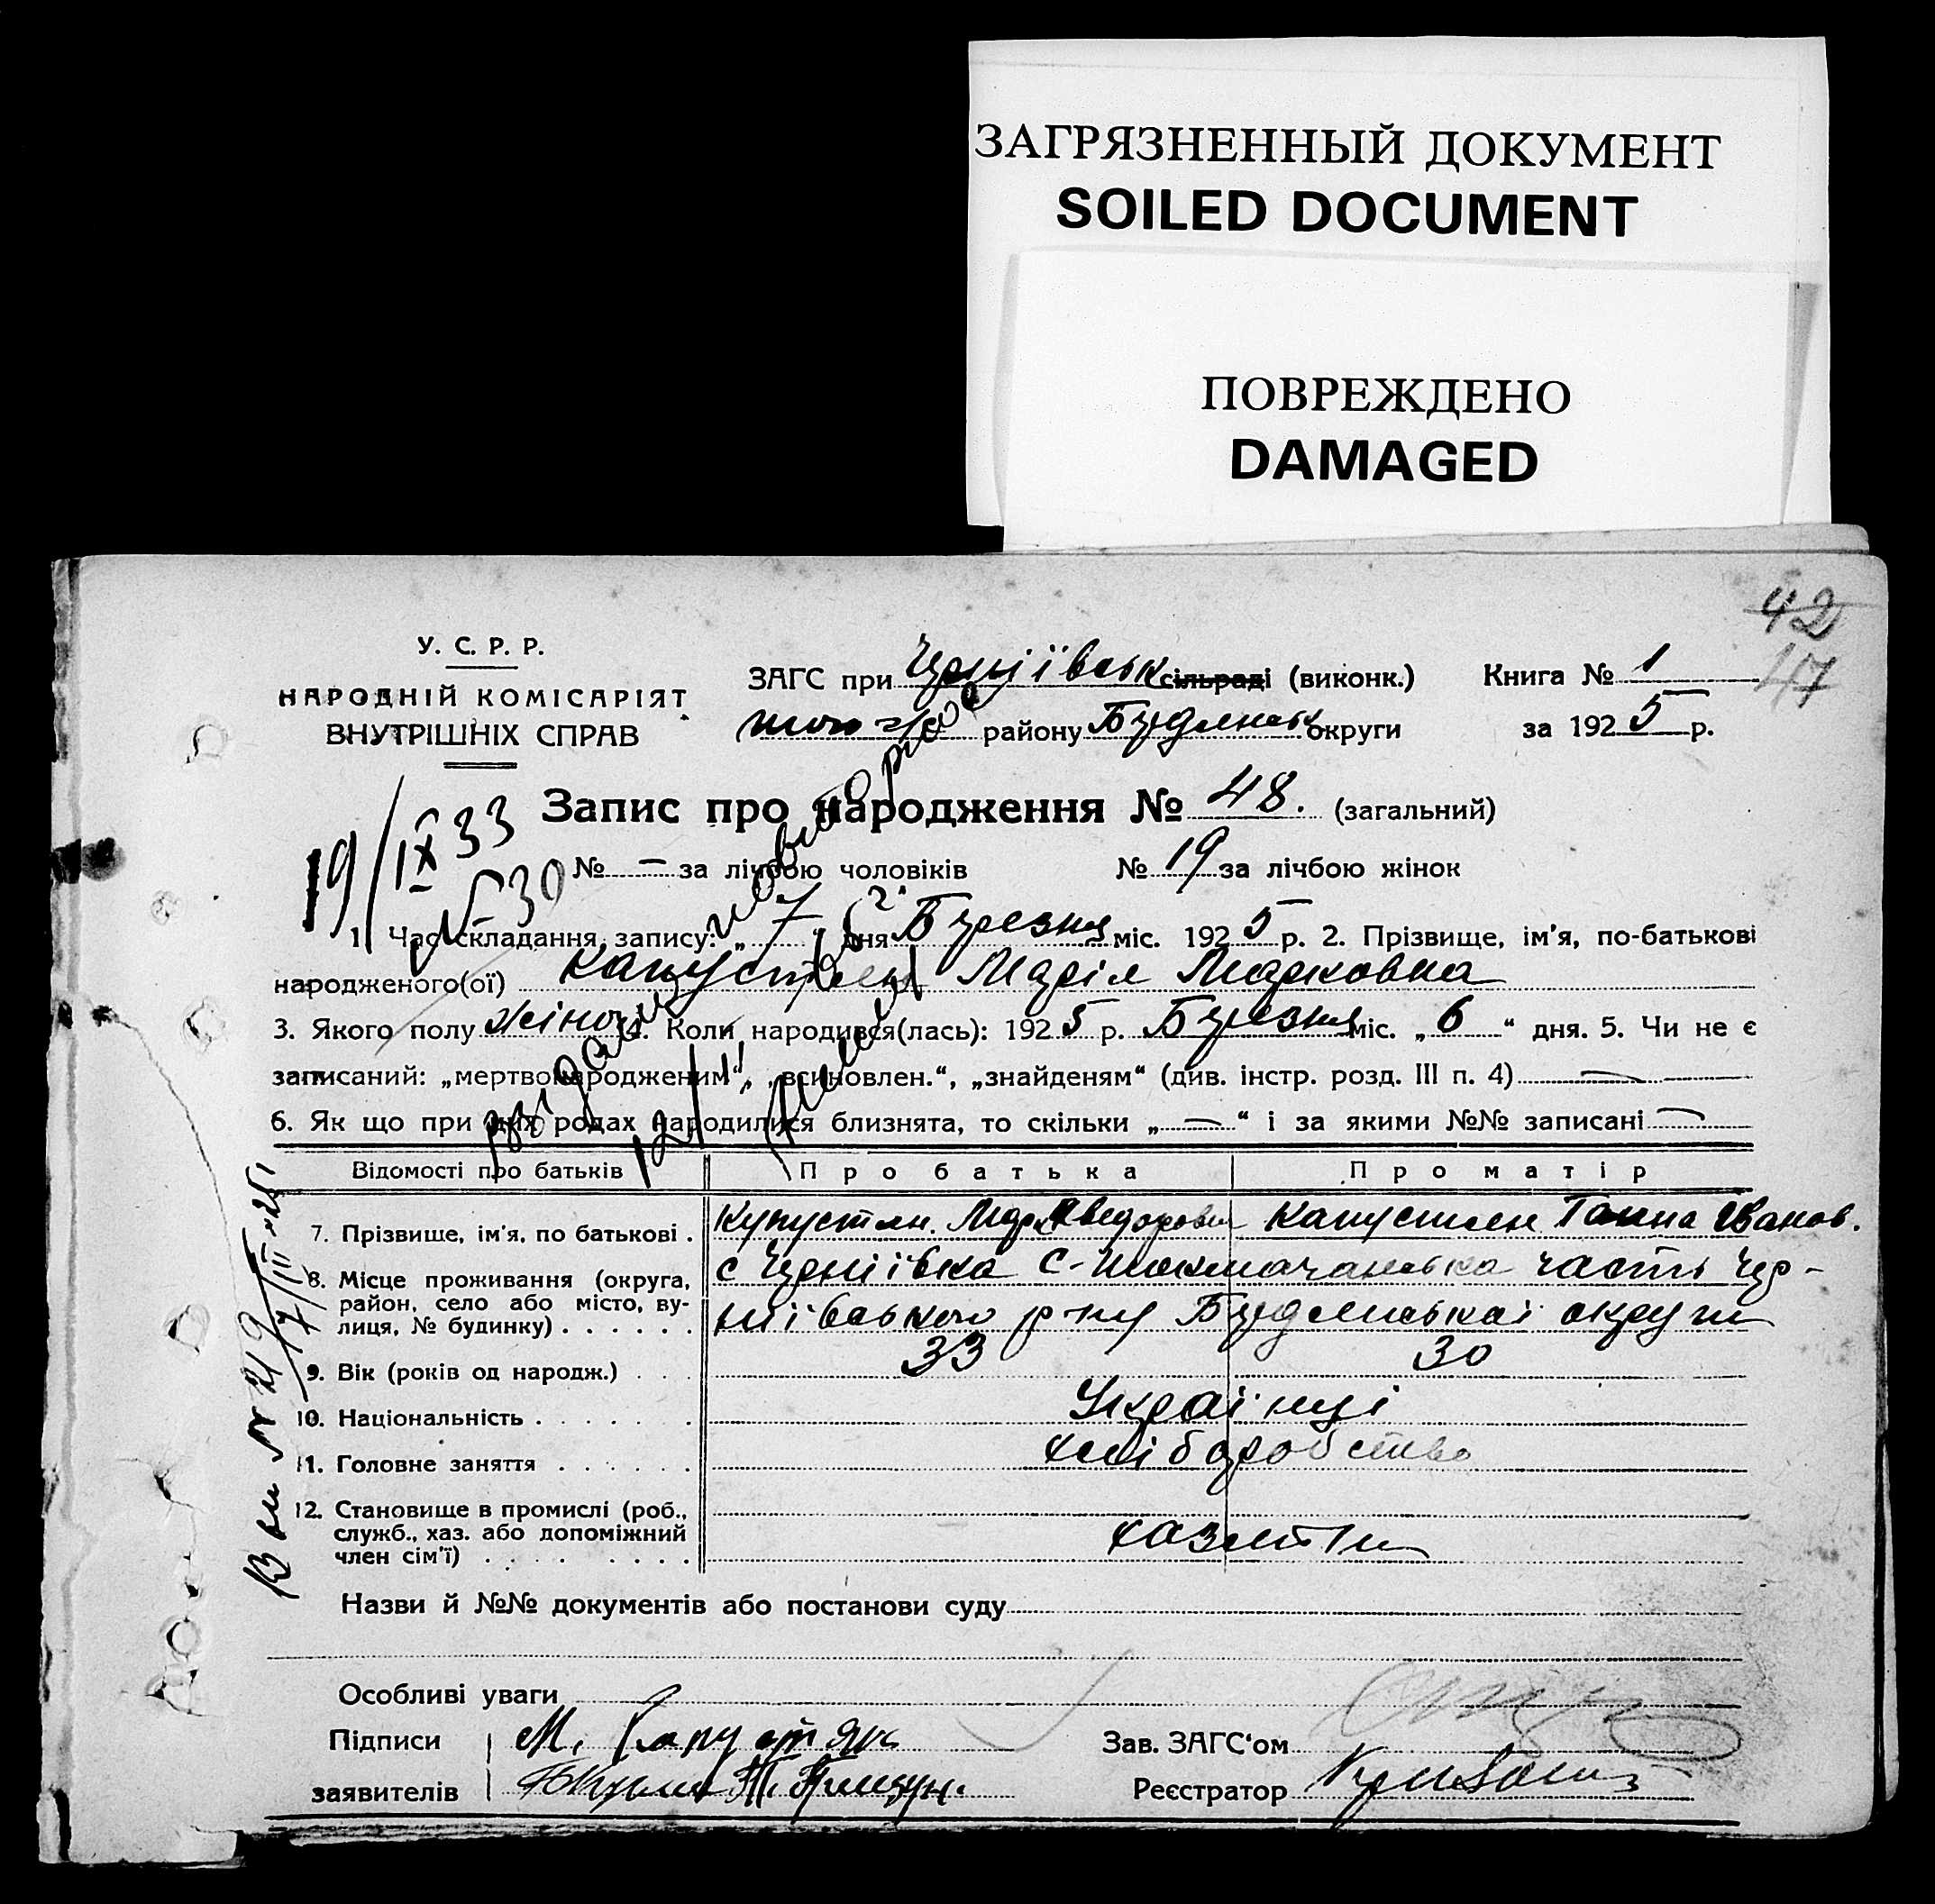 ЗАГРЯЗНЕННЫЙ ДОКУМЕНТ
SOILED DOCUMENT
ПОВРЕЖДЕНО
DAMAGED
42
47
У. С. Р. Р.
НАРОДНІЙ КОМІСАРІЯТ
ВНУТРІШНІХ СПРАВ
ЗАГС при сільраді (виконк.) Книга № 1
району округи за 1925 р.
Запис про народження № 48. (загальний)
19/IX 33
№ 30
№ — за лічбою чоловіків № 19 за лічбою жінок
1. Час складання запису: „ 7 “ дня Березня міс. 1925 р. 2. Прізвище, ім'я, по-батькові
народженого(ої) Капустян Марія Марковна
3. Якого полу жіноч. 4. Коли народився(лась): 1925 р. Березня міс. „ 6 “ дня. 5. Чи не є
записаний: „мертвонародженим“, „всиновлен.“, „знайденям“ (див. інстр. розд. III п. 4) —
6. Як що при цих родах народилися близнята, то скільки „ — “ і за якими №№ записані —
Відомості про батьків Про батька Про матір
7. Прізвище, ім'я, по батькові . Капустян Ганна Іванов.
8. Місце проживання (округа,
район, село або місто, ву-
лиця, № будинку) . . . . . . часть
округи
9. Вік (років од народж.) . . . 33 30
10. Національність . . . . . . . Українці
11. Головне заняття . . . . . . хліборобство
12. Становище в промислі (роб.,
служб., хаз. або допоміжний
член сім'ї) . . . . . . . .
Назви й №№ документів або постанови суду
Особливі уваги
Підписи М. Капустян Зав. ЗАГС'ом
заявителів Реєстратор